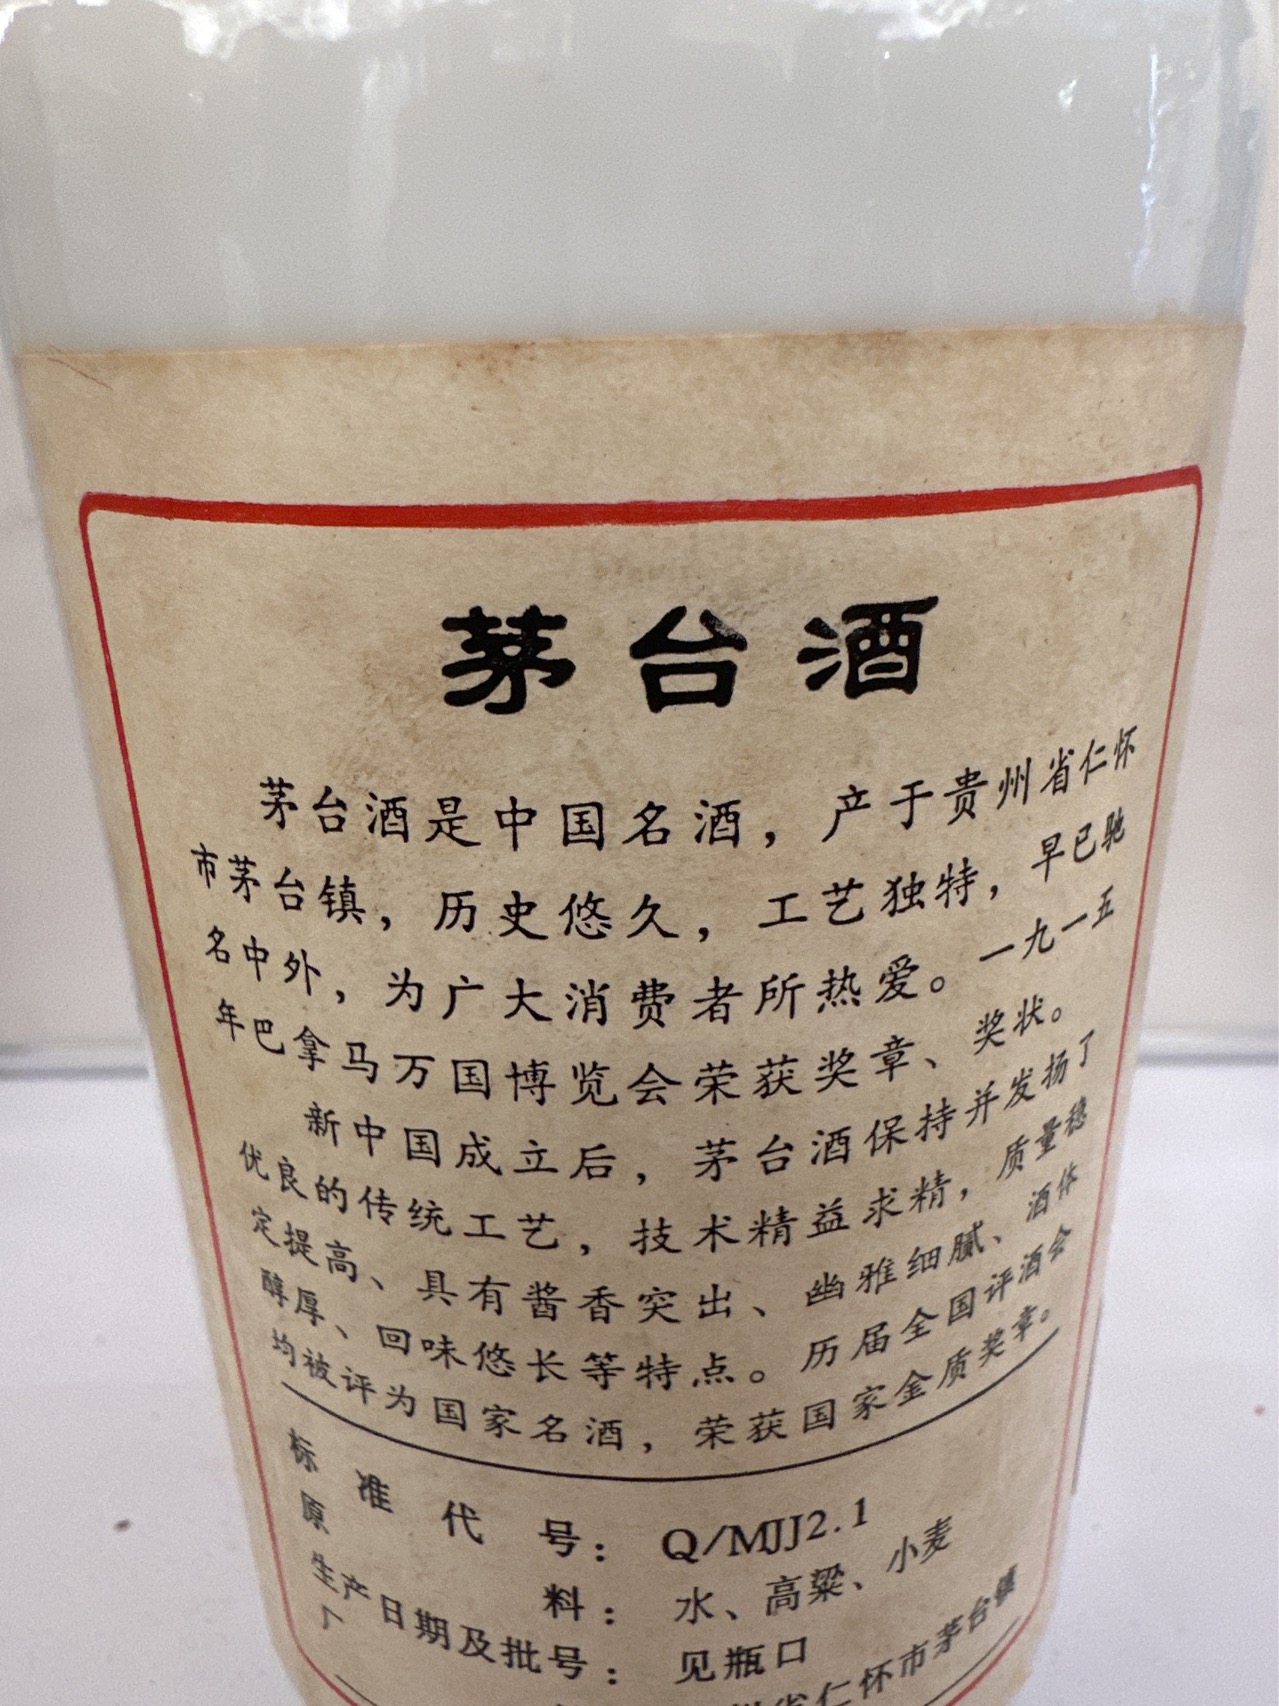 茅台酒
茅台酒是中国名酒，产于贵州省仁怀
市茅台镇，历史悠久，工艺独特，早已驰
名中外，为广大消费者所热爱。一九一五
年巴拿马万国博览会荣获奖章、奖状。
新中国成立后，茅台酒保持并发扬了
优良的传统工艺，技术精益求精，质量稳
定提高、具有酱香突出、幽雅细腻、酒体
醇厚、回味悠长等特点。历届全国评酒会
均被评为国家名酒，荣获国家金质奖章。
标准代号：Q/MJJ2.1
原料：水、高粱、小麦
生产日期及批号：见瓶口
厂 州省仁怀市茅台镇